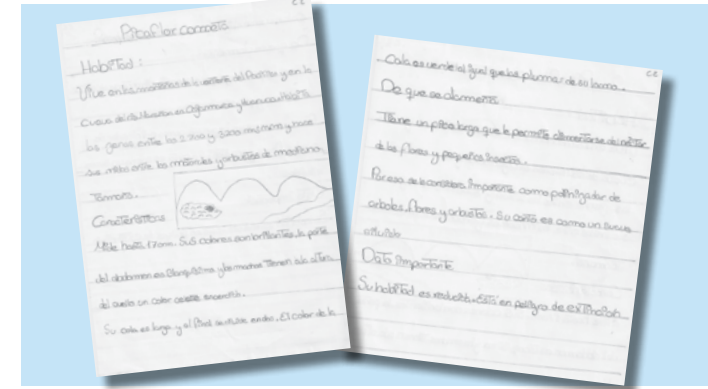 Picaflor cometa
Habitad:
Vive en las montañas de la vertiente del Pacífico y en la
cuenca del río Marañon en Cajamarca y Huancavelica
los genes entre los 2 y 3200 msnm y hace
sus nidos entre los matorrales y arbustos de mediano
Tamaño.
Características
Mide hasta 17cm. Sus colores son brillantes, la parte
del abdomen es blanquísima y los machos Tienen a la altura
del cuello un color encendido.
Su cola es larga y al final se divide en dos. El color de la
Cola es verde al igual que las plumas de su lomo.
De que se alimenta
Tiene un pico largo que le permite alimentarse del néctar
de las flores y pequeños insectos.
Por eso se le considera importante como polinizador de
arboles, flores y arbustos. Su canto es como un suave
Dato Importante
Su habitad es reducido. Está en peligro de extinción